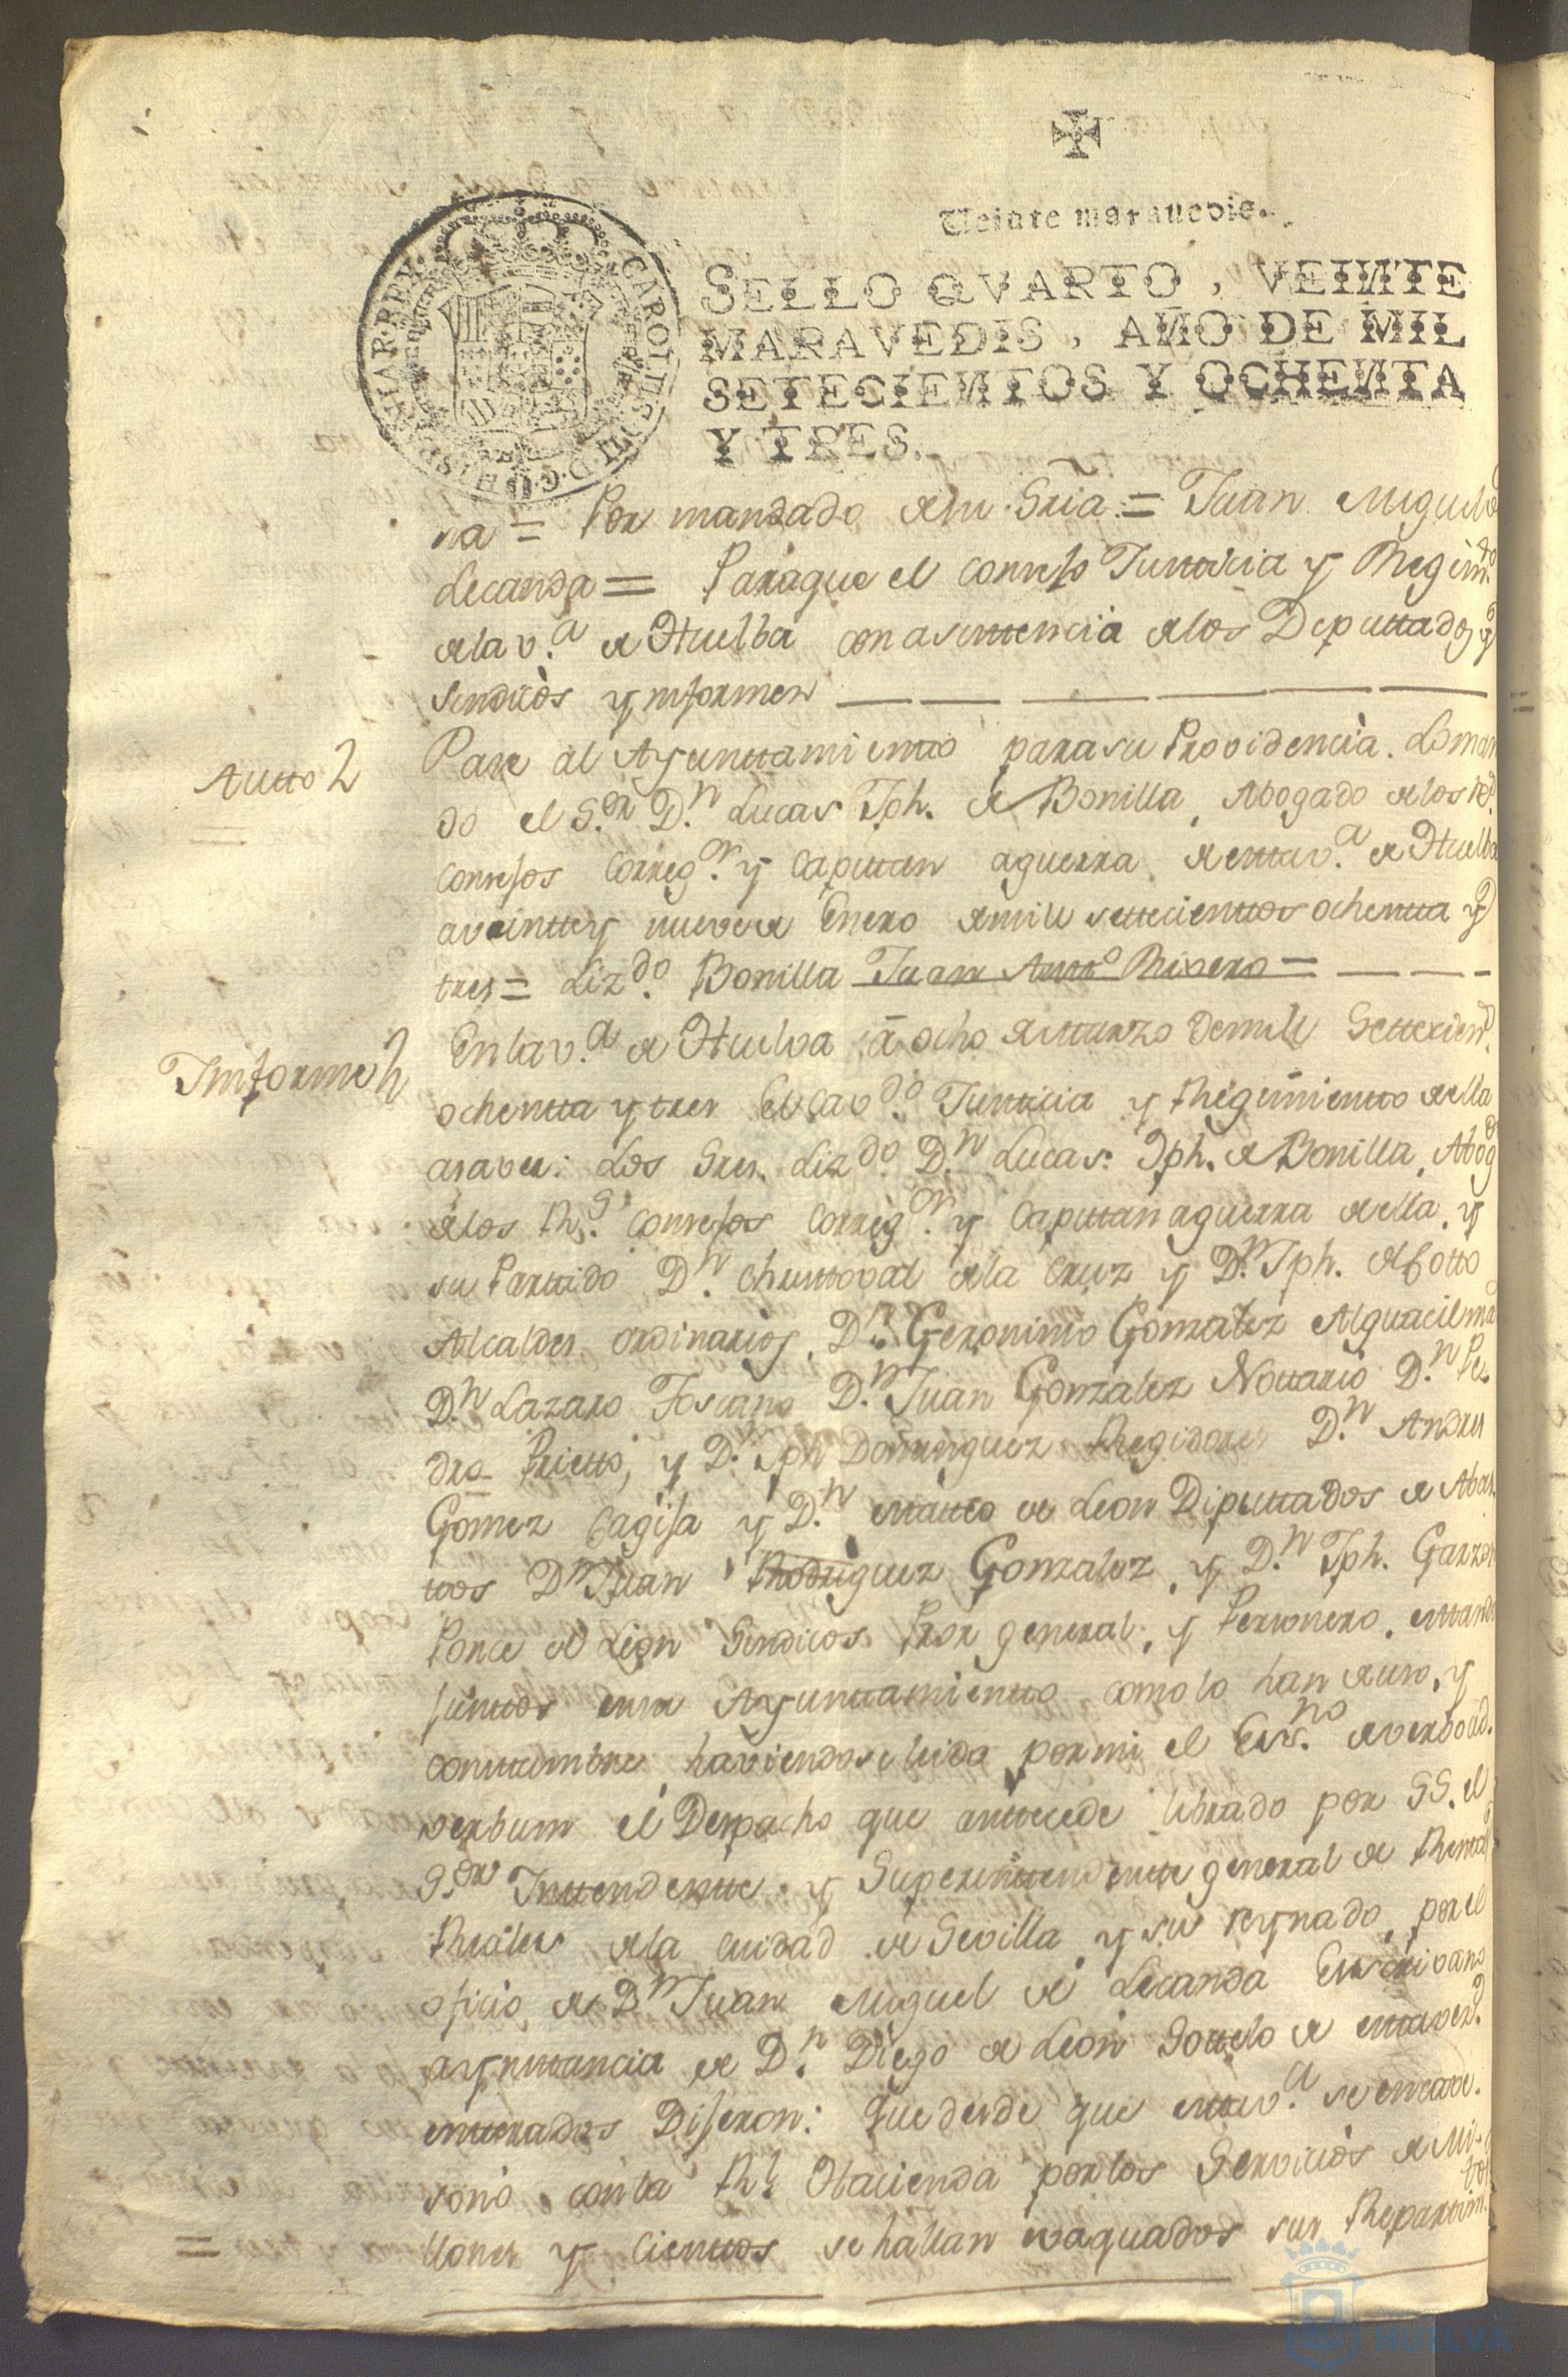 ✠
Veinte maravedis.
SELLO QVARTO, VEINTE
MARAVEDIS, AÑO DE MIL
SETECIENTOS Y OCHENTA
Y TRES.
CAROLUS III D. G. HISPANIAR. REX
na = Por mandado de su Sria = Juan Miguel de
Lecanda = Paraque el Consejo Justicia y Regim.to
de la v.a de Huelba con asistencia de los Deputtados y
Sindicos ynformen
Autto
Pase al Ayunttamientto parasu Providencia. Loman
do el S.or D.n Lucas Jph. de Bonilla, Abogado de los R.s
Consejos Correg.or y Capittan aguerra de estta v.a de Huelba
aveintte y nueve de Enero de mill settecienttos ochentta y
tres = Liz.do Bonilla Juan Antt.o Rivero =
Imforme
En la v.a de Huelva â ocho de Marzo demill Settecien.s
ochentta y tres El Cav.do Justticia y Regimientto de ella
asaver: Los Sres. Liz.do D.n Lucas Jph. de Bonilla, Abog.do
de los R.s Consejos Correg.or y Capittan aguerra de ella, y
su Parttido D.n Christtoval de la Cruz y D.n Jph. de Cotto
Alcaldes ordinarios, D.n Geronimo Gonzalez Alguacil ma
D.n Lazaro Toscano D.n Juan Gonzalez Nottario D.n Pe
dro Prietto, y D.n Jph Dominguez Regidores D.n Andres
Gomez Cagisa y D.n Matteo de Leon Diputtados de Abas
ttos D.n Juan Rodriguez Gonzalez, y D.n Jph. Garzon
Ponce de Leon Sindicos Pror general, y Personero, esttando
junttos en su Ayunttamientto como lo han de uso, y
costtumbre haviendose leido por mi el Ess.no de verbo ad.
verbum el Despacho que anttecede librado por SS. el
S.or Inttendentte y Superinttendentte general de Renttas
Reales de la ciudad de Sevilla y su reynado, por el
oficio de D.n Juan Miguel de Lecanda Escrivano
aynsttancia de D.n Diego de Leon Sottelo de esttavez.d
entterados Dijeron: Que desde que estta v.a se encave.
sonó con la R.l Hacienda por los Servicios de Mi-
llones y Cienttos se hallan evaquados sus Reparttim.tos
HUELVA